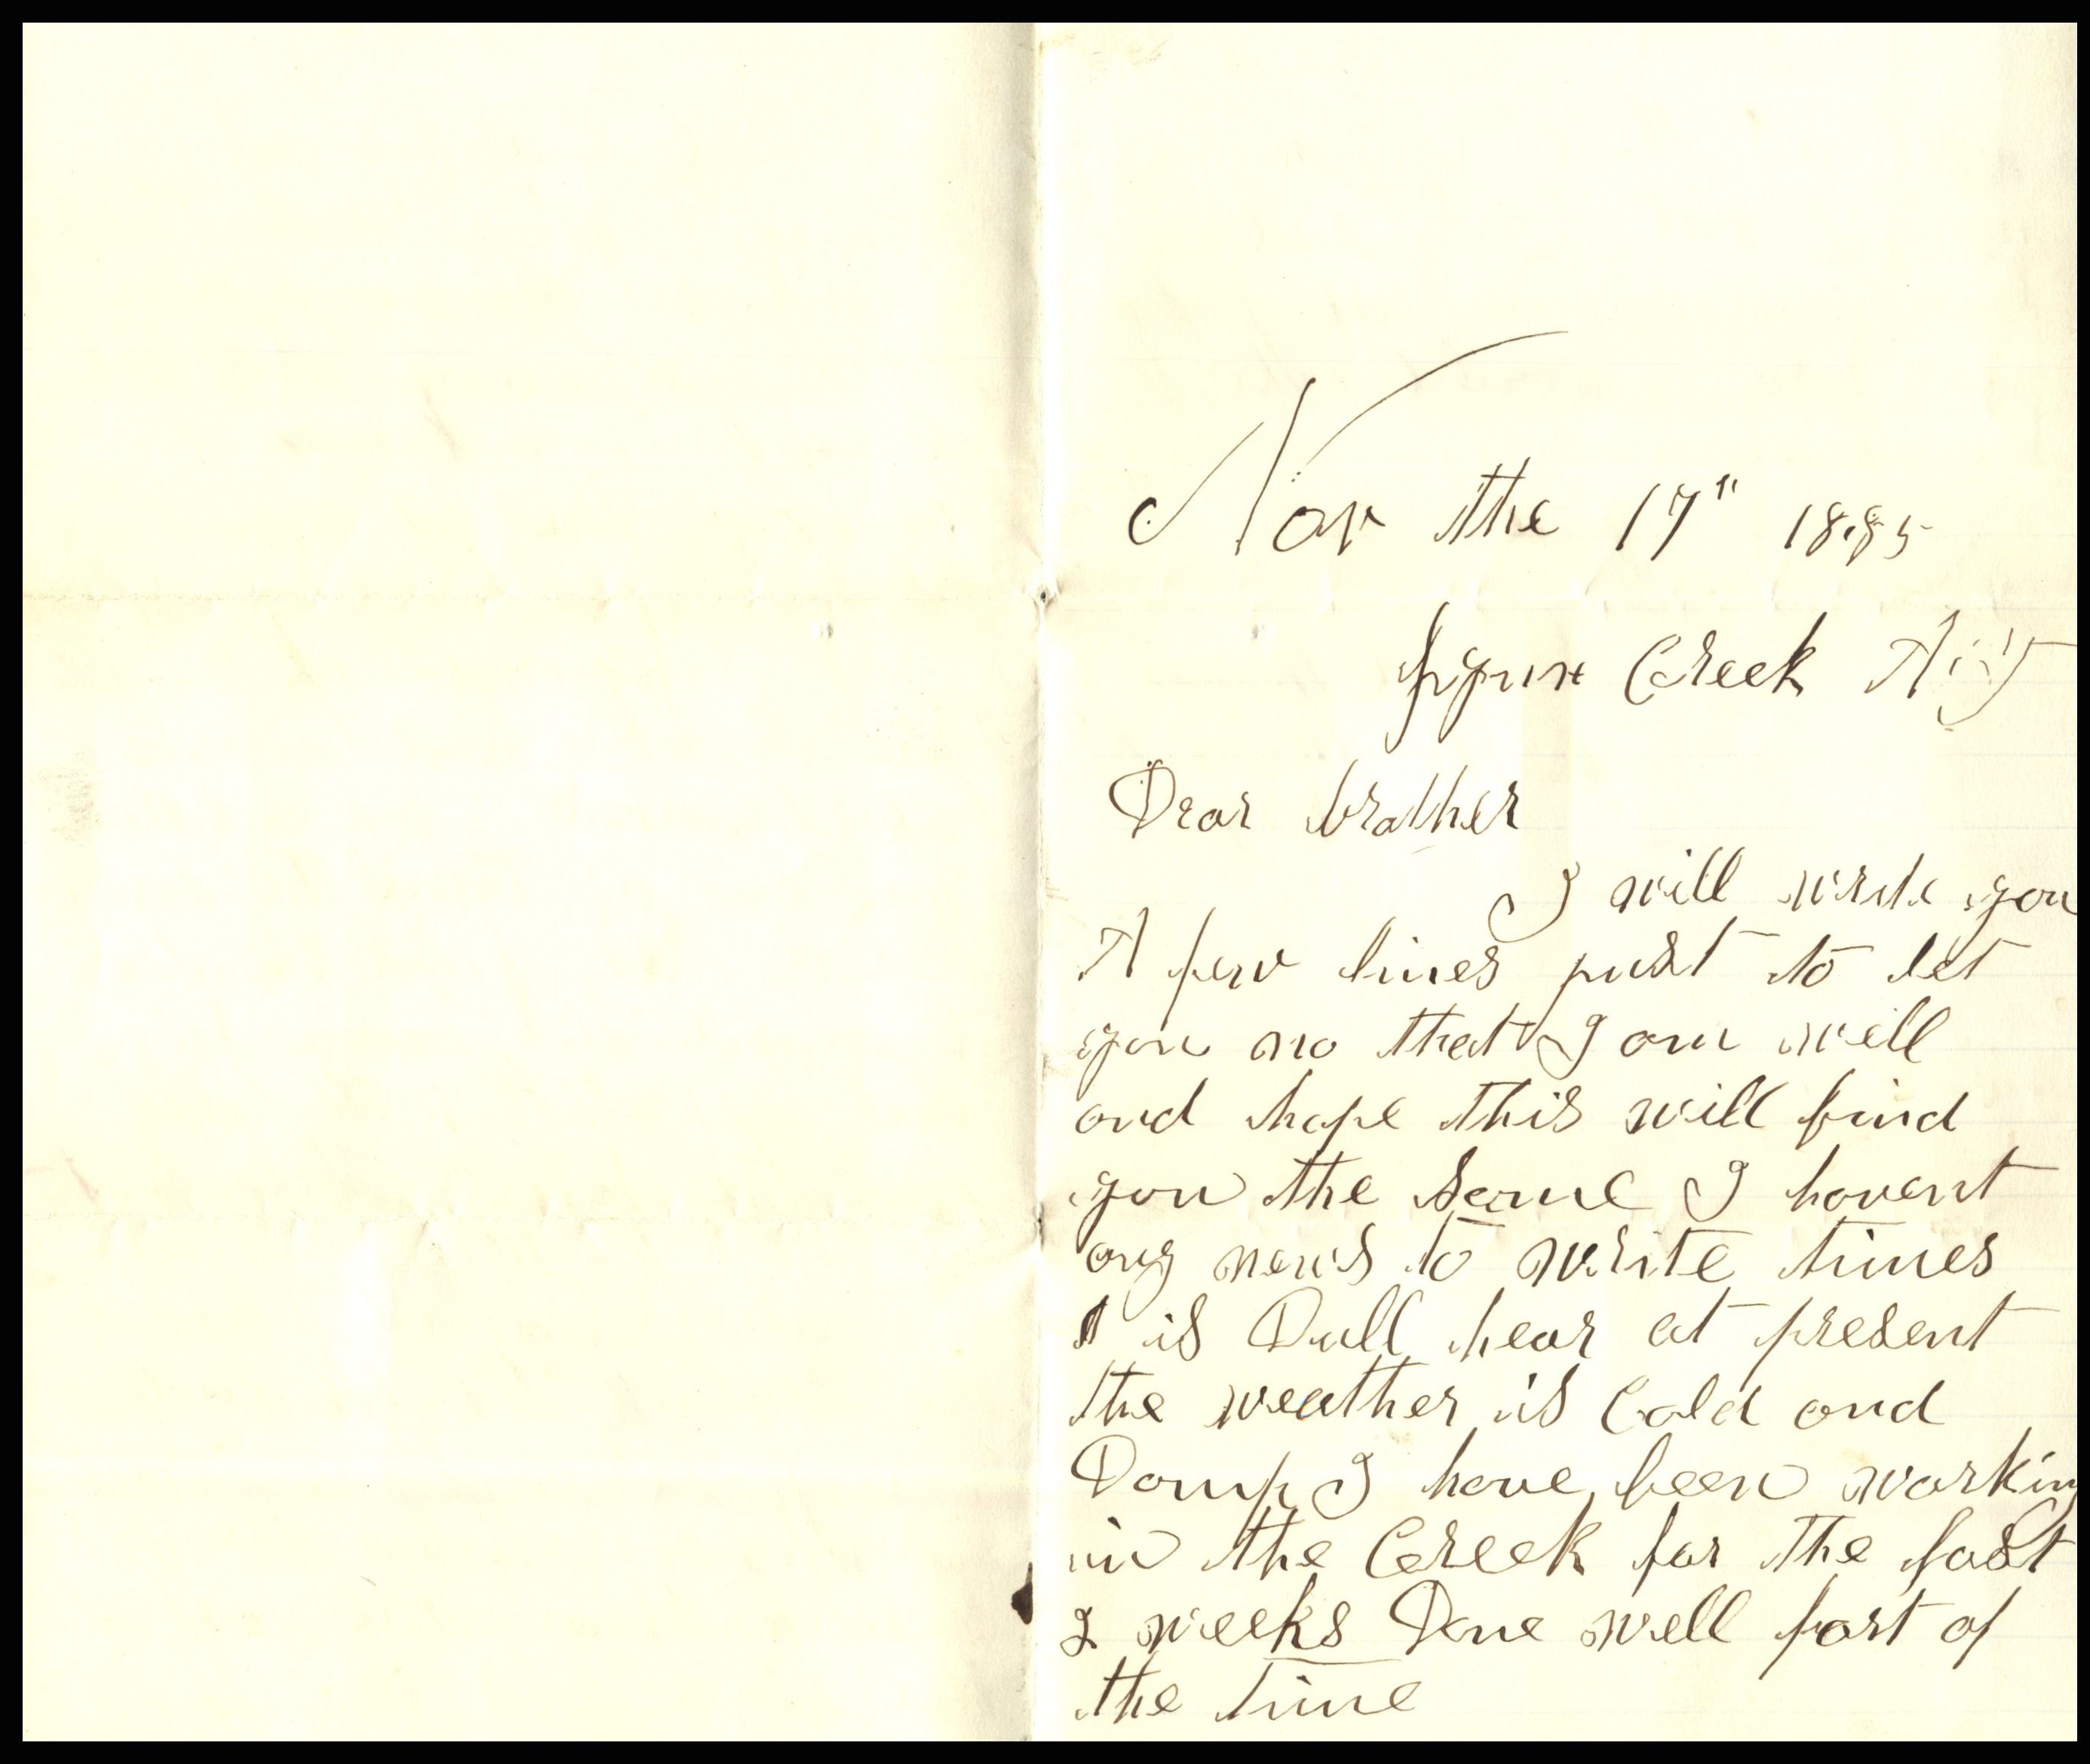 Nov the 17" 1885
Creek
Dear brother
I will write you
A few lines just to let
you no that I am well
and hope this will find
you the same I havent
any news to write times
is Dull hear at present
the weather is Cold and
Damp I have been working
in the Creek for the past
2 weeks Done well part of
the time